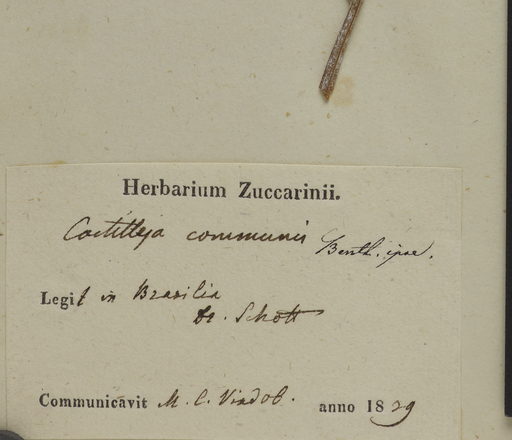 Herbarium Zuccarinii.
Castilleja communis Benth. ipse.
Legit in Brasilia
Dr. Schott
Communicavit M. C. Vindob. anno 1839